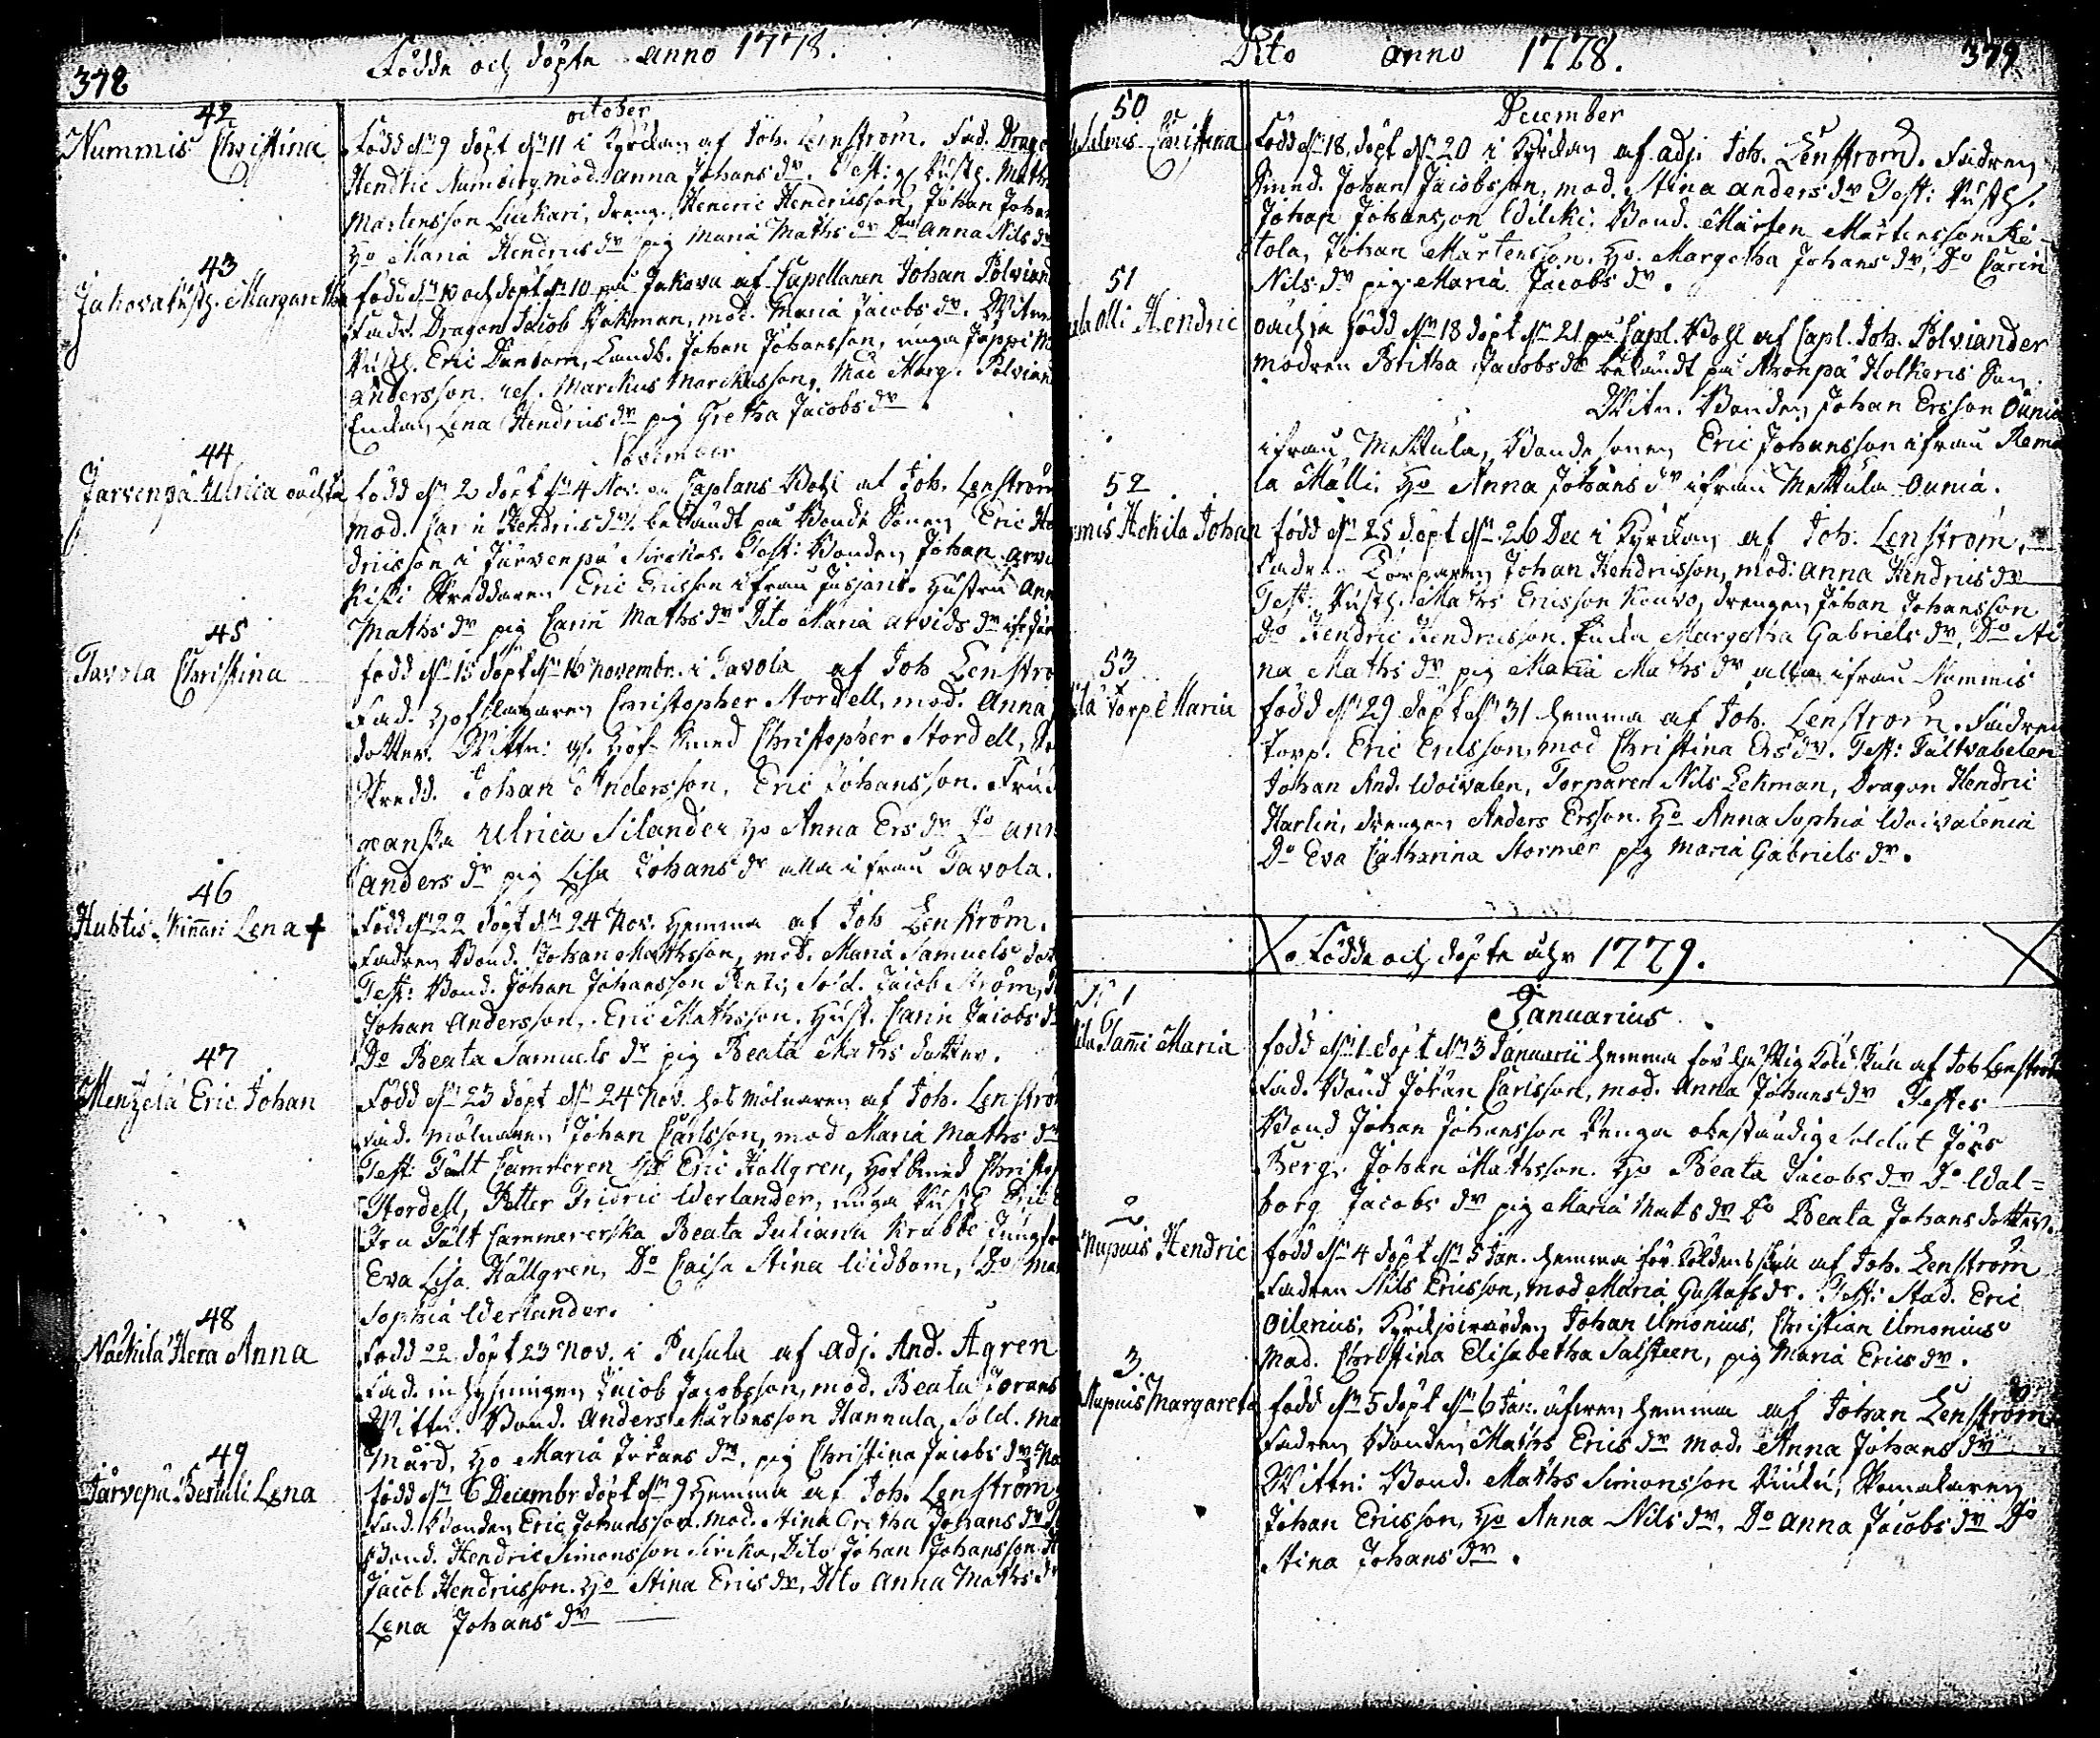 378
Födde och döpte anno 1778.
42
Nummis Christina
october
Född dn 9 döpt dn 11 i Kyrckan af Joh. Lenström. Fad. Drago
Hendric Numberg mod. Anna Johans dr. Test: Rusth. Math
Mårtensson Liukari, dreng. Hendric Hendricsson, Johan Johan
Ho Maria Hendrics dr pig Maria Maths dr Do Anna Nils dr
43
Jakova Rusth. Margaretha
född dn 10 och döpt dn 10 på Jakova af Capellanen Johan Polviand
Fadr. Dragon Jacob Bjökman, mod. Maria Jacobs dr. Witn.
Rusth. Eric Danbom, Landb. Johan Johansson, unga
Andersson. Marckus Marckusson, Mad Marg. Polvian
Enckan Lena Hendrics dr pig Gretha Jacobs dr
44
Järvenpä Ulrica oächta
November
född dn 2 döpt dn 4 Nov. på Caplans Bohl af Joh. Lenström
mod. Carin Hendrics dr. belägradt på Bonde Sonen Eric He
dricsson i Järvenpä Sirckas. Test: Bonden Johan Arvi
Kiski Skreddaren Eric Ericsson ifrån Husfru Ann
Maths dr pig Carin Maths dr Dito Maria Arvids dr
45
Tavola Christina
född dn 15 döpt dn 16 Novembr. i Tavola af Joh Lenströ
Fad. Hofslagaren Christopher Nordell, mod. Anna
dotter. Wittn: Hof-Smed Christopher Nordell,
Skredd. Johan Andersson, Eric Johansson. Fru
Ulrica Silander Ho Anna Ers dr Do Ann
Anders dr pig Lisa Johans dr alla ifrån Tavola.
46
Huhtis Kinnari Lena +
Född dn 22 döpt dn 24 Nov. Hemma af Joh Lenström.
Fadren Bond. Johan Mathsson, mod. Maria Samuels dot
Test: Bond. Johan Johansson Sold. Jacob Ström,
Johan Andersson, Eric Mathsson. Hust. Carin Jacobs d
Do Beata Samuels dr pig Beata Maths dotter.
47
Menzelä Eric Johan
Född dn 23 döpt dn 24 Nov. hos Mölnaren af Joh. Lenströ
Fad. Mölnaren Johan Carlsson, mod Maria Maths dr
Test: Fält Cammreren Hr Eric Hallgren, Hofsmed Christop
Nordell, Petter Fridric Werlander, unga Rusth Eric
Fru Fält Cammererska Beata Juliana Krabbe Jungfr
Eva Lisa Hällgren, Do Caisa Stina Widbom, Do Mar
Sophia Werlander.
48
Näckilä Hera Anna
Född 22 döpt 23 Nov. i Pusula af Adj. And. Agren
Fad. inhysningen Jacob Jacobsson, mod. Beata Jörans
Wittn. Bond. Anders Mårtensson Hannula, Sold. Ma
Mård, Ho Maria Jörans dr, pig Christina Jacobs dr
49
Järvepä Bertuli Lena
född dn 6 Decembr döpt dn 9 Hemma af Joh. Lenström
Fad. Bonden Eric Johansson mod. Stina Cretha Johans dr
Bond. Hendric Simonsson Sirckas, Dito Johan Johansson
Jacob Hendricsson. Ho Stina Erics dr, Dito Anna Maths dr
Lena Johans dr
Dito anno 1778.
379
50
Salmis Christina
December
Född dn 18, döpt dn 20 i Kyrckan af adj. Joh. Lenström. Fadren
Smed. Johan Jacobsson, mod. Stina Anders dr Test: Rusth.
Johan Johansson Wilcki. Bond. Mårten Mårtensson
tola, Johan Mårtensson. Ho. Margetha Johans dr, Do Carin
Nils dr pig Maria Jacobs dr.
51
Olli Hendric
oächta född dn 18 döpt dn 21 på Capl. Bohl af Capl. Joh. Polviander
modren Britha Jacobs dr på Kolkeris Son.
Witn. Bonden Johan Ersson Ounia
ifrån Mettula, Bonde sonen Eric Johansson ifrån
la Malli. Ho Anna Johans dr ifrån Mettula Ounia.
52
Hckila Johan
född dn 25 döpt dn 26 Dec i Kyrckan af Joh. Lenström,
Fadren Torparen Johan Hendricsson, mod: Anna Hendrics dr
Test: Rusth. Maths Ericsson Kouvo, drengen Johan Johansson
do Hendric Hendricsson. Encka Margetha Gabriels dr, Do Sti
na Maths dr, pig Maria Maths dr alla ifrån Nommis
53
Torp Maria
född dn 29 döpt dn 31 hemma af Joh. Lenström. Fadren
Torp. Eric Ericsson, mod Christina Ers dr. Test: Fältväbelen
Johan And. Woivalen, Torparen Nils Lekman, Dragon Hendric
Harlin, drengen Anders Ersson. Ho Anna Sophia Woivalenia
Do Eva Catharina Stormer pig Maria Gabriels dr.
Födde och döpte åhr 1779.
N 1
Tammi Maria
Januarius
född dn 1 döpt dn 3 Januarii hemma för häftig köld skul af Joh Lenström
Fad. Bond Johan Carlsson, mod. Anna Johans dr Testes
Bond Johan Johansson Penga obeständig Soldat Jöns
Berg, Johan Mathsson. Ho Beata Jacobs dr Do Wal=
borg Jacobs dr pig Maria Mats dr Do Beata Johans dotter.
2
Nupuis Hendric
född dn 4 döpt dn 5 Jan. hemma för köldens skul af Joh. Lenström
Fadren Nils Ericsson, mod Maria Gustafs dr. Test: Stad. Eric
Oilenius, Kyrckjovärden Johan Ilmonius, Christian Ilmonius
Mad. Christina Elisabetha Salsteen, pig Maria Erics dr.
3.
Nupuis Margareta
född dn 5 döpt dn 6 Jan. äfwen hemma af Johan Lenström
Fadren Bonden Maths Erics dr Mod. Anna Johans dr
Wittn: Bond. Maths Simonsson Skomakaren
Johan Ericsson, Ho Anna Nils dr, Do Anna Jacobs dr Do
Stina Johans dr.